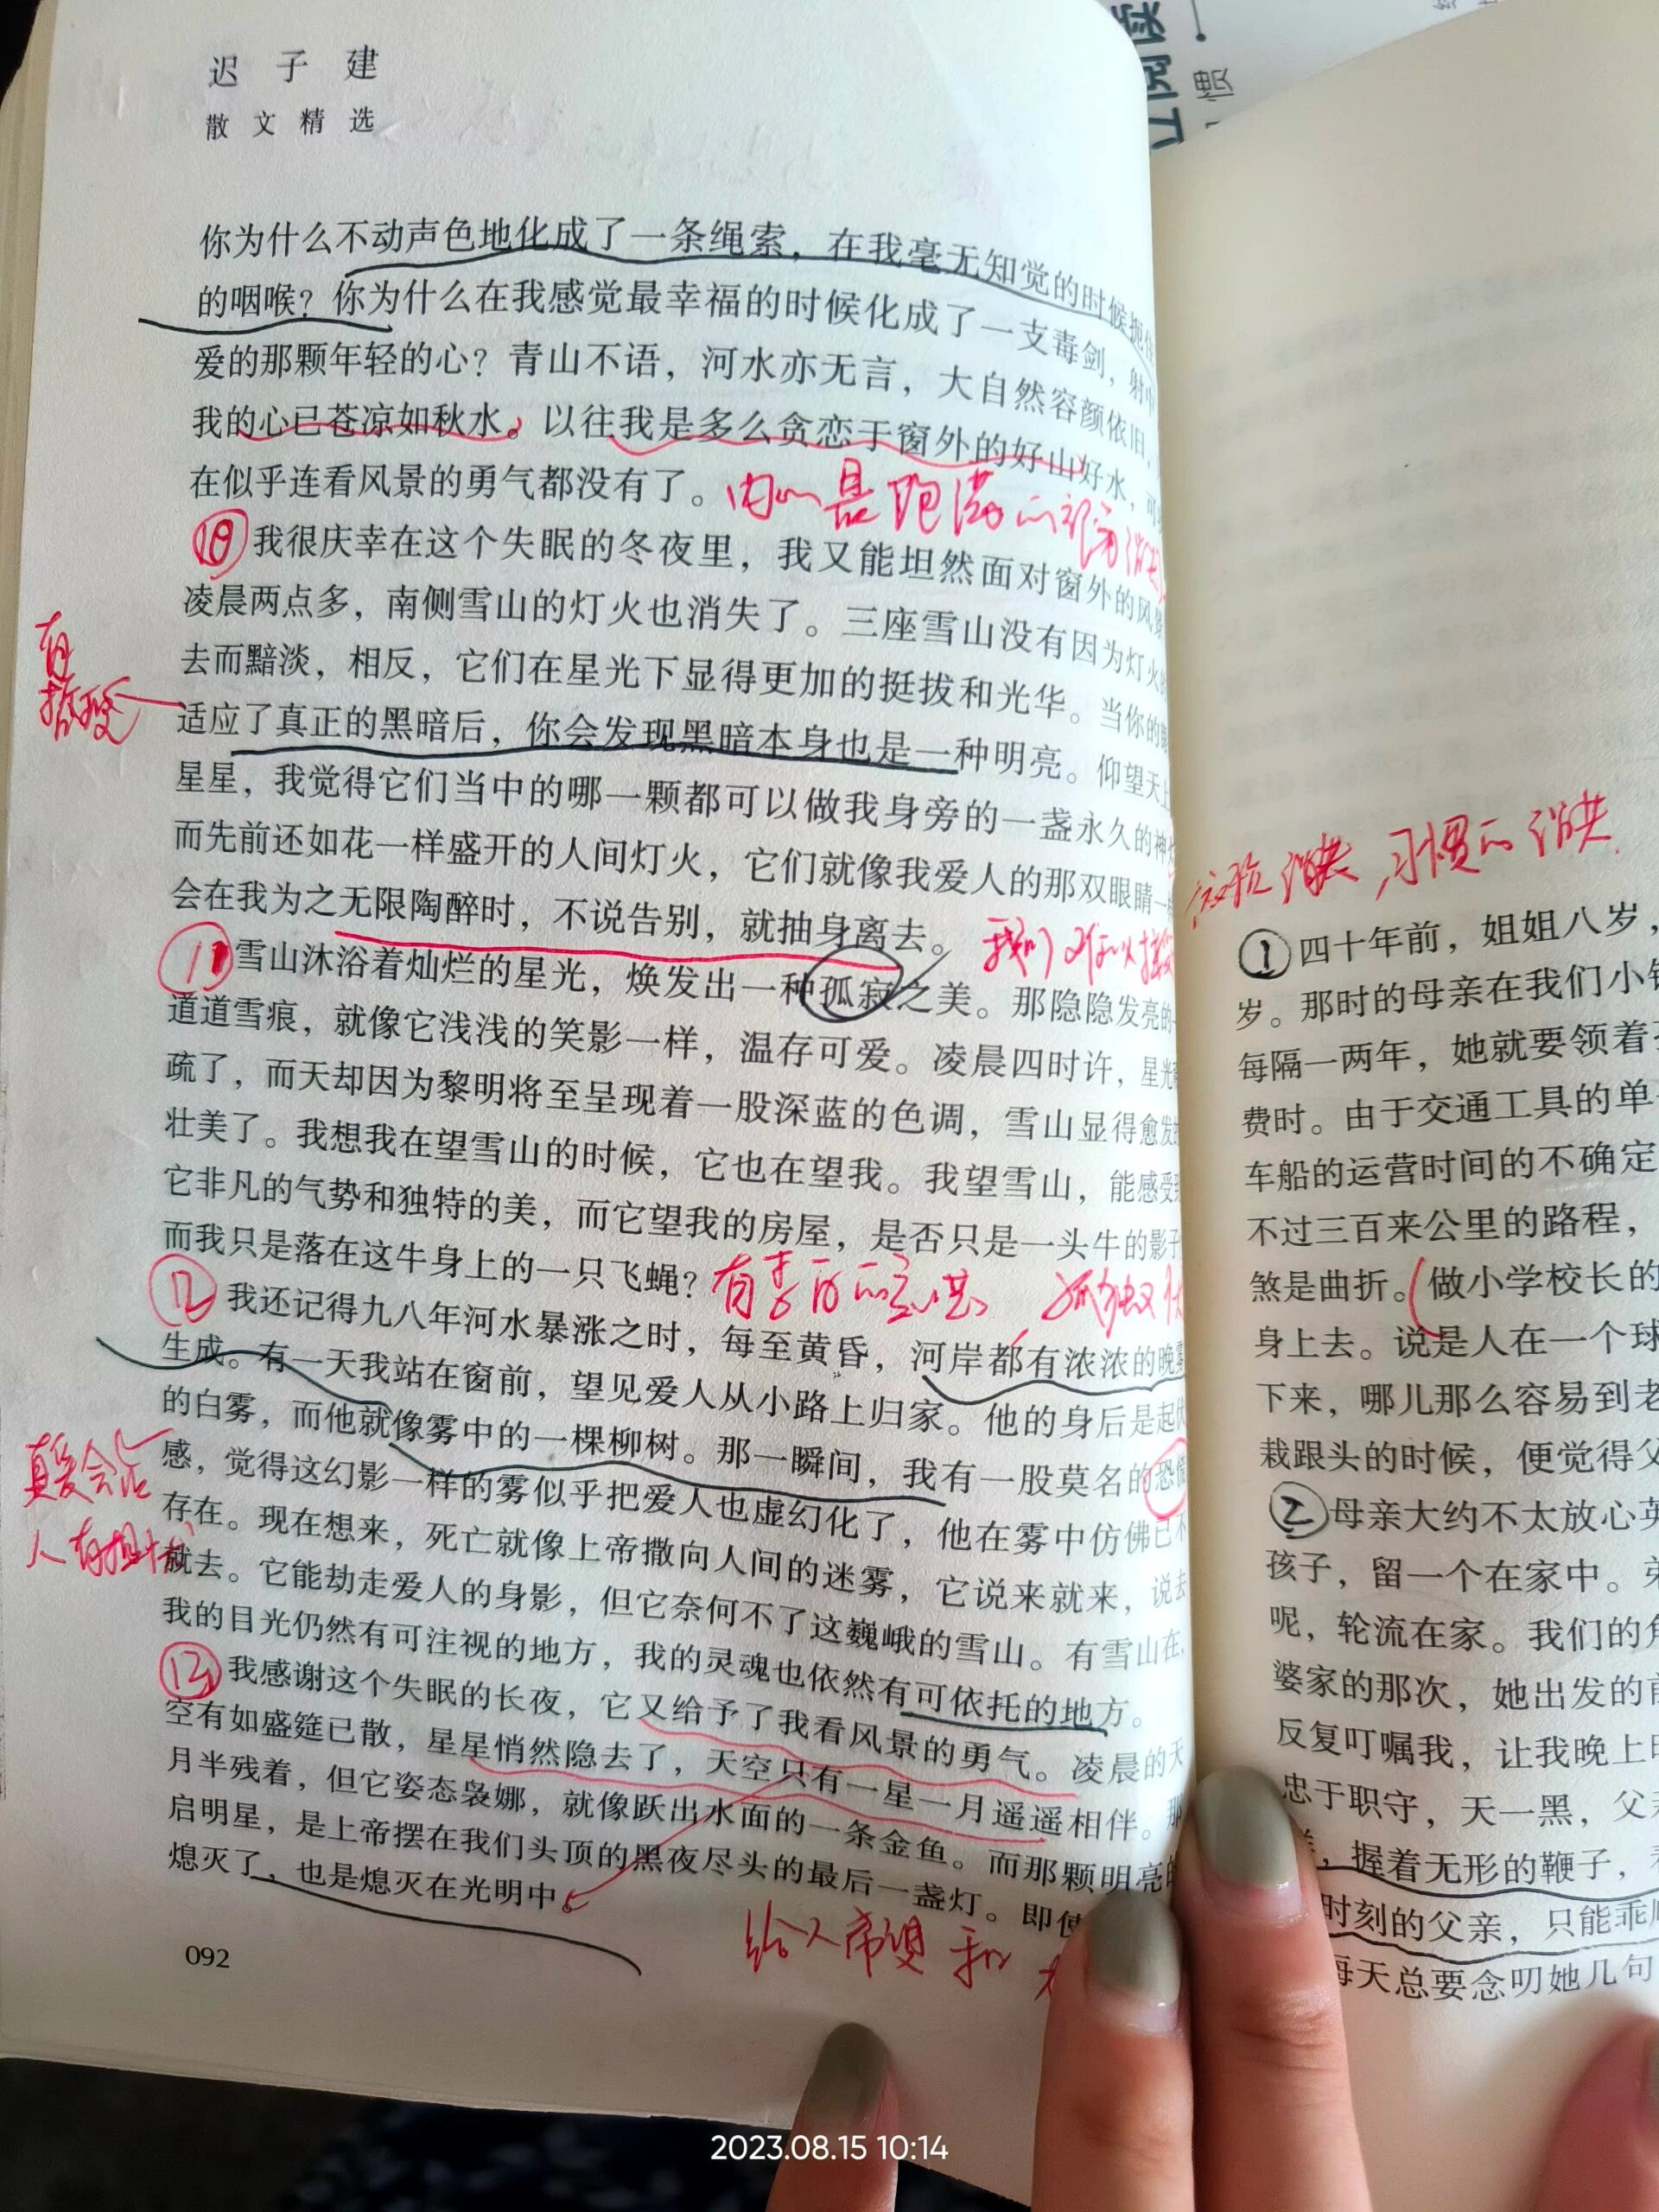 迟子建
散文精选
你为什么不动声色地化成了一条绳索，在我毫无知觉的时候扼住
的咽喉？你为什么在我感觉最幸福的时候化成了一支毒剑，射中
爱的那颗年轻的心？青山不语，河水亦无言，大自然容颜依旧，
我的心已苍凉如秋水。以往我是多么贪恋于窗外的好山好水，可
在似乎连看风景的勇气都没有了。
内心是饱满的
⑩我很庆幸在这个失眠的冬夜里，我又能坦然面对窗外的风景
凌晨两点多，南侧雪山的灯火也消失了。三座雪山没有因为灯火的
去而黯淡，相反，它们在星光下显得更加的挺拔和光华。当你的眼
有哲理
适应了真正的黑暗后，你会发现黑暗本身也是一种明亮。仰望天上
星星，我觉得它们当中的哪一颗都可以做我身旁的一盏永久的神灯
而先前还如花一样盛开的人间灯火，它们就像我爱人的那双眼睛一样
会在我为之无限陶醉时，不说告别，就抽身离去。
我们难以接受
⑪雪山沐浴着灿烂的星光，焕发出一种孤寂之美。那隐隐发亮的一
道道雪痕，就像它浅浅的笑影一样，温存可爱。凌晨四时许，星光
疏了，而天却因为黎明将至呈现着一股深蓝的色调，雪山显得愈发的
壮美了。我想我在望雪山的时候，它也在望我。我望雪山，能感受到
它非凡的气势和独特的美，而它望我的房屋，是否只是一头牛的影子
而我只是落在这牛身上的一只飞蝇？
有李白的意
⑫我还记得九八年河水暴涨之时，每至黄昏，河岸都有浓浓的晚雾
生成。有一天我站在窗前，望见爱人从小路上归家。他的身后是起伏
的白雾，而他就像雾中的一棵柳树。那一瞬间，我有一股莫名的恐慌
真爱会让
人有担忧
感，觉得这幻影一样的雾似乎把爱人也虚幻化了，他在雾中仿佛已不
存在。现在想来，死亡就像上帝撒向人间的迷雾，它说来就来，说去
就去。它能劫走爱人的身影，但它奈何不了这巍峨的雪山。有雪山在，
我的目光仍然有可注视的地方，我的灵魂也依然有可依托的地方。
⑬我感谢这个失眠的长夜，它又给予了我看风景的勇气。凌晨的天
空有如盛筵已散，星星悄然隐去了，天空只有一星一月遥遥相伴。那
月半残着，但它姿态袅娜，就像跃出水面的一条金鱼。而那颗明亮的
启明星，是上帝摆在我们头顶的黑夜尽头的最后一盏灯。即使
熄灭了，也是熄灭在光明中。
给人希望和
092
习惯的消失
①四十年前，姐姐八岁，
岁。那时的母亲在我们小镇
每隔一两年，她就要领着孩
费时。由于交通工具的单
车船的运营时间的不确定
不过三百来公里的路程，
煞是曲折。做小学校长的
身上去。说是人在一个球
下来，哪儿那么容易到老
栽跟头的时候，便觉得父
②母亲大约不太放心
孩子，留一个在家中。弟
呢，轮流在家。我们的
婆家的那次，她出发的前
反复叮嘱我，让我晚上
忠于职守，天一黑，父亲
，握着无形的鞭子，
时刻的父亲，只能乖
每天总要念叨她几句
2023.08.15 10:14